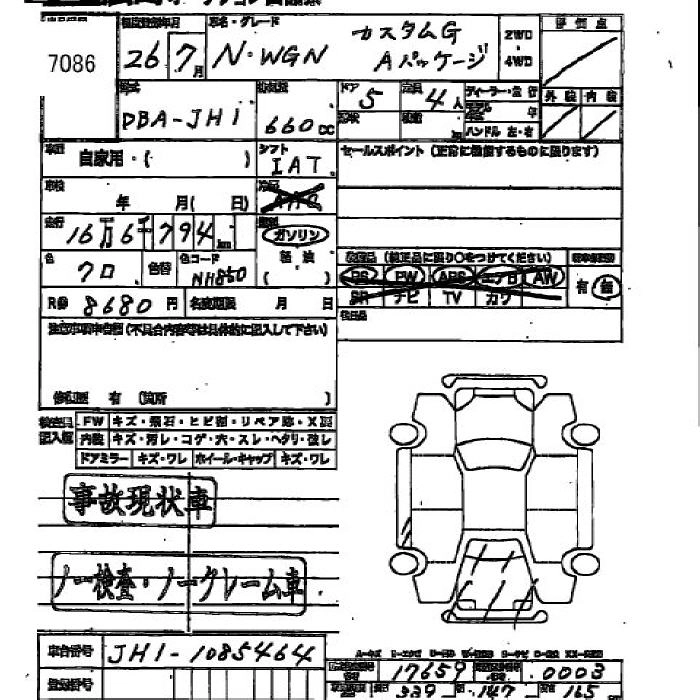 7086
26 7月
車名・グレード
N-WGN
カスタムG
Aパッケージ
2WD
4WD
評価点
外装 内装
DBA-JH1
660 CC
ドア 5
4人
ディーラー・並行
ハンドル 左・右
自家用・( )
シフト
IAT
セールスポイント (正常に機能するものに限ります)
車検
年 月( 日)
走行
16万6千794km
ガソリン
軽油
( )
色
クロ
色替
色コード
NH850
(純正品に限り○をつけてください)
PS PW ABS エアロ AW
SR ナビ TV カワ
有 無
R券 8680円
名変期限 月 日
注意事項申告欄(不具合内容等は具体的に記入して下さい)
修復歴 有 (箇所 )
検査員
記入欄
FW キズ・飛石・ヒビ割・リペア跡・X
内装 キズ・汚レ・コゲ・穴・スレ・ヘタリ
ドアミラー キズ・ワレ ホイール・キャップ キズ・ワレ
事故現状車
ノー検査・ノークレーム車
車台番号 JH1-1085464
登録番号
17659
0003
339
147
165